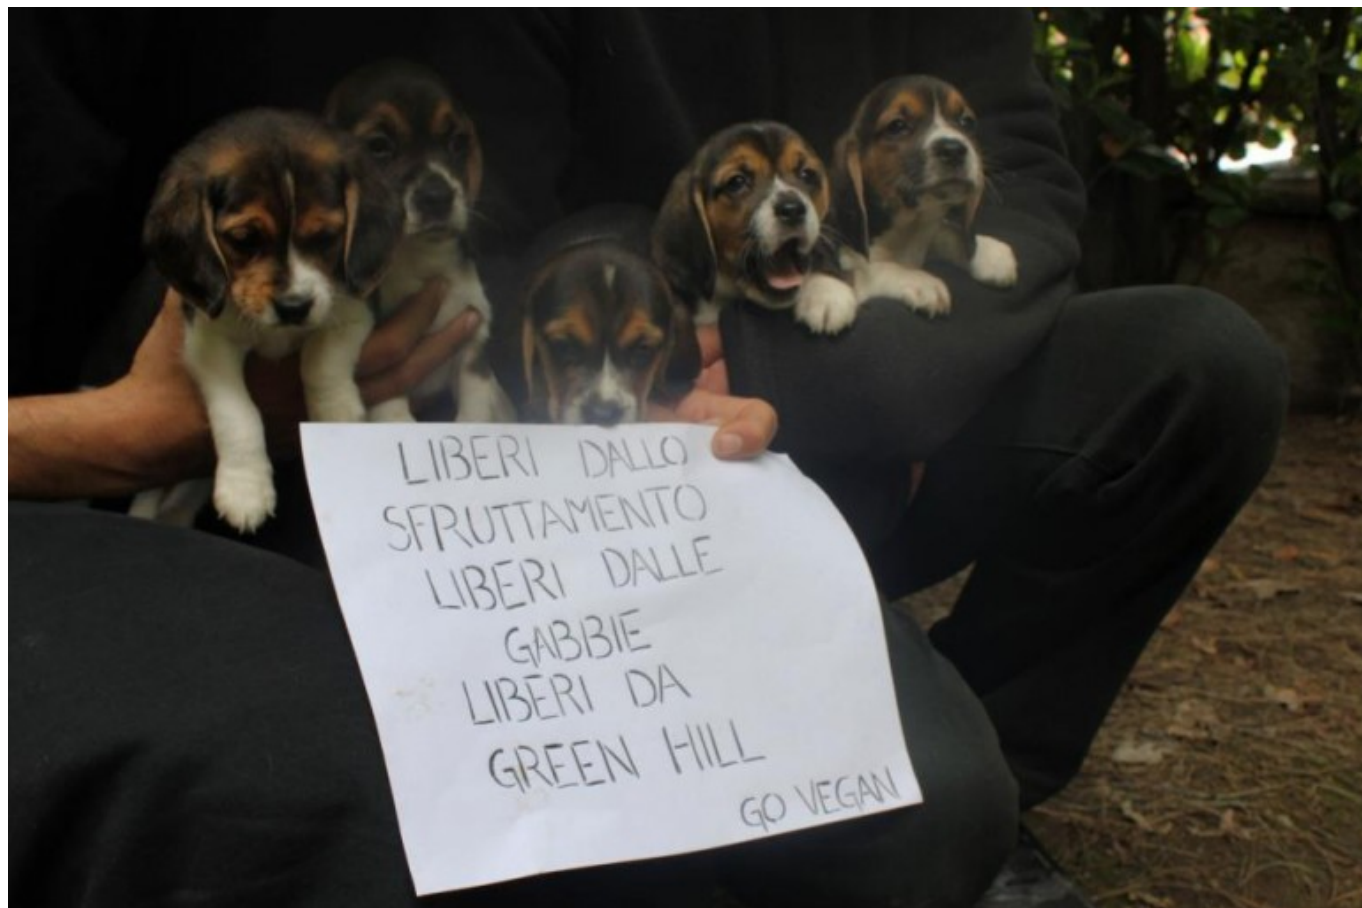 LIBERI DALLO
SFRUTTAMENTO
LIBERI DALLE
GABBIE
LIBERI DA
GREEN HILL
GO VEGAN